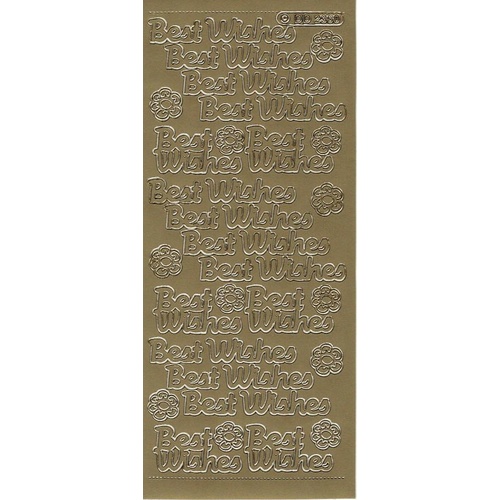 Best Wishes
Best Wishes
Best Wishes
Best Wishes
Best Best
Wishes Wishes
Best Wishes
Best Wishes
Best Wishes
Best Wishes
Best Best
Wishes Wishes
Best Wishes
Best Wishes
Best Wishes
Best Best
Wishes Wishes